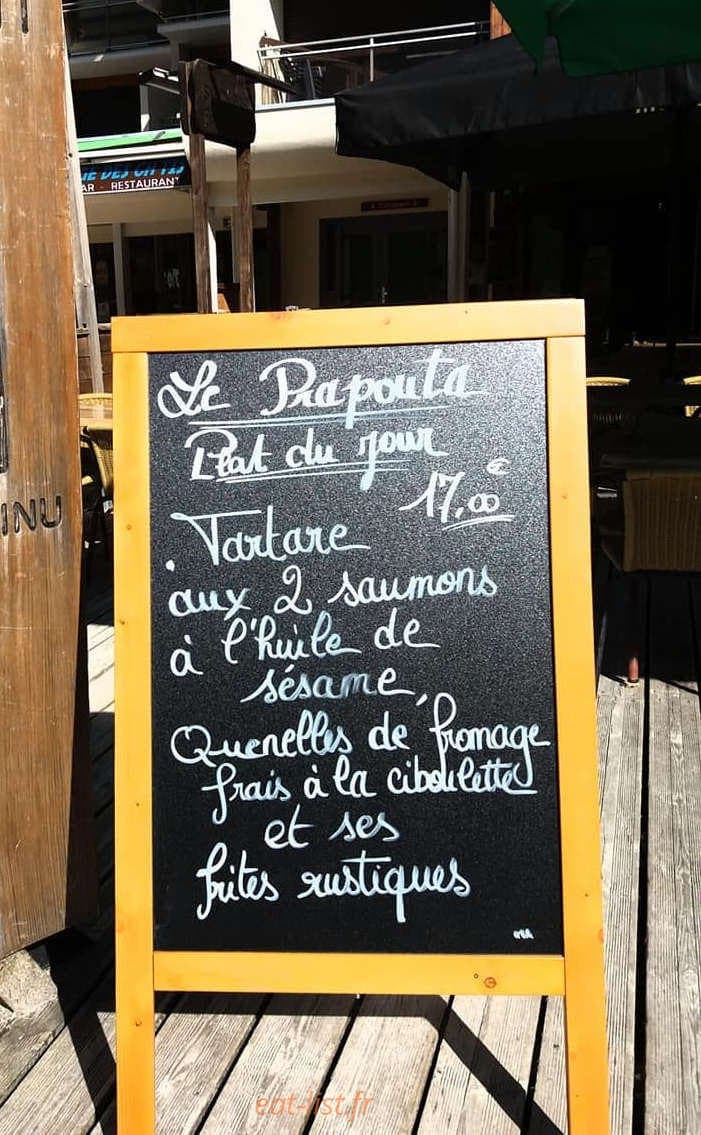 BAR - RESTAURANT
INU
Le Prapouta
Plat du jour
17,00 €
. Tartare
aux 2 saumons
à l'huile de
sésame,
Quenelles de fromage
frais à la ciboulette
et ses
frites rustiques
eat-list.fr